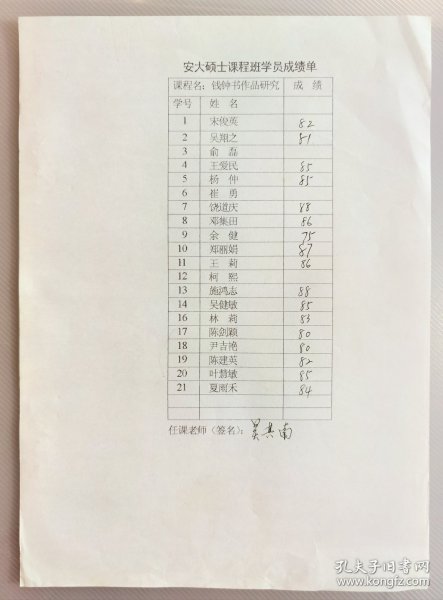 安大硕士课程班学员成绩单
课程名：钱钟书作品研究 成 绩
学号 姓 名
1 宋俊英 82
2 吴翔之 81
3 俞 磊
4 王爱民 85
5 杨 仲 85
6 崔 勇
7 饶道庆 88
8 邓集田 86
9 余 健 75
10 郑丽娟 87
11 王 莉 86
12 柯 熙
13 施鸿志 88
14 吴健敏 85
16 林 莉 83
17 陈剑颖 80
18 尹吉艳 80
19 陈建英 82
20 叶慧敏 85
21 夏雨禾 84
任课老师（签名）：吴其南
孔夫子旧书网
www.kongfz.com